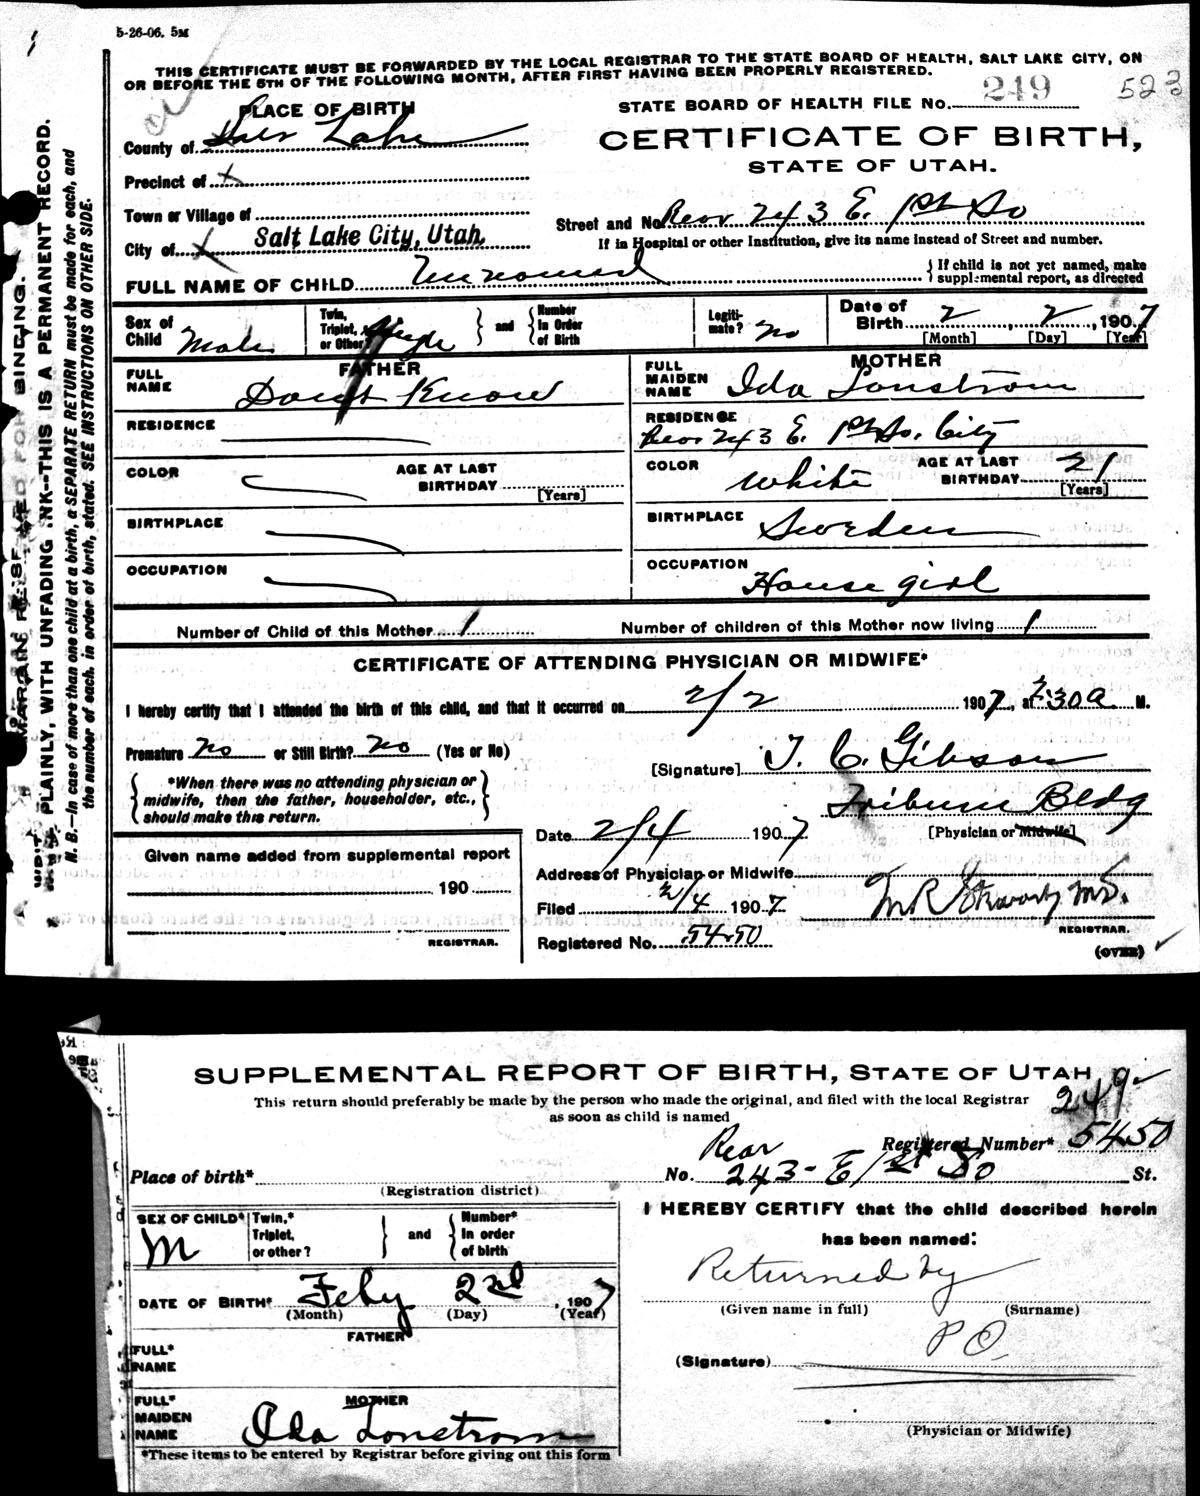 5-26-06. 5M
THIS CERTIFICATE MUST BE FORWARDED BY THE LOCAL REGISTRAR TO THE STATE BOARD OF HEALTH, SALT LAKE CITY, ON
OR BEFORE THE 5TH OF THE FOLLOWING MONTH, AFTER FIRST HAVING BEEN PROPERLY REGISTERED.
STATE BOARD OF HEALTH FILE No. 249 523
PLACE OF BIRTH
County of Salt Lake
Precinct of x
Town or Village of
City of x Salt Lake City, Utah,
CERTIFICATE OF BIRTH,
STATE OF UTAH.
Street and No. Rear 243 E. 1st So
If in Hospital or other Institution, give its name instead of Street and number.
FULL NAME OF CHILD Unnamed
If child is not yet named, make
supplemental report, as directed
Sex of Child Male
Twin, Triplet, or Other? Single
and
Number In Order of Birth
Legitimate? No
Date of Birth 2, 2, 1907
[Month] [Day] [Year]
FATHER
FULL NAME Dont Know
RESIDENCE
COLOR
AGE AT LAST BIRTHDAY
[Years]
BIRTHPLACE
OCCUPATION
MOTHER
FULL MAIDEN NAME Ida Lonstrom
RESIDENCE Rear 243 E. 1st So. City
COLOR White
AGE AT LAST BIRTHDAY 21
[Years]
BIRTHPLACE Sweden
OCCUPATION House girl
Number of Child of this Mother 1
Number of children of this Mother now living 1
CERTIFICATE OF ATTENDING PHYSICIAN OR MIDWIFE*
I hereby certify that I attended the birth of this child, and that it occurred on 2/2 1907, at 2:30 a M.
Premature No or Still Birth? No (Yes or No)
*When there was no attending physician or
midwife, then the father, householder, etc.,
should make this return.
[Signature] T. C. Gibson
Tribune Bldg
[Physician or Midwife]
Date 2/4 1907
Address of Physician or Midwife
Filed 2/4 1907
REGISTRAR.
Registered No. 5450
(OVER)
Given name added from supplemental report
190
REGISTRAR.
PLAINLY, WITH UNFADING INK—THIS IS A PERMANENT RECORD.
N. B.—In case of more than one child at a birth, a SEPARATE RETURN must be made for each, and
the number of each, in order of birth, stated. SEE INSTRUCTIONS ON OTHER SIDE.
SUPPLEMENTAL REPORT OF BIRTH, STATE OF UTAH
This return should preferably be made by the person who made the original, and filed with the local Registrar
as soon as child is named
249
Registered Number* 5450
Place of birth*
(Registration district)
No. Rear 243 - E 1st So St.
SEX OF CHILD* M
Twin,* Triplet, or other?
and
Number* In order of birth
DATE OF BIRTH* Feby 22d, 1907
(Month) (Day) (Year)
FATHER
FULL* NAME
MOTHER
FULL* MAIDEN NAME Ida Lonstrom
*These items to be entered by Registrar before giving out this form
I HEREBY CERTIFY that the child described herein
has been named:
Returned by
(Given name in full) (Surname)
P O.
(Signature)
(Physician or Midwife)